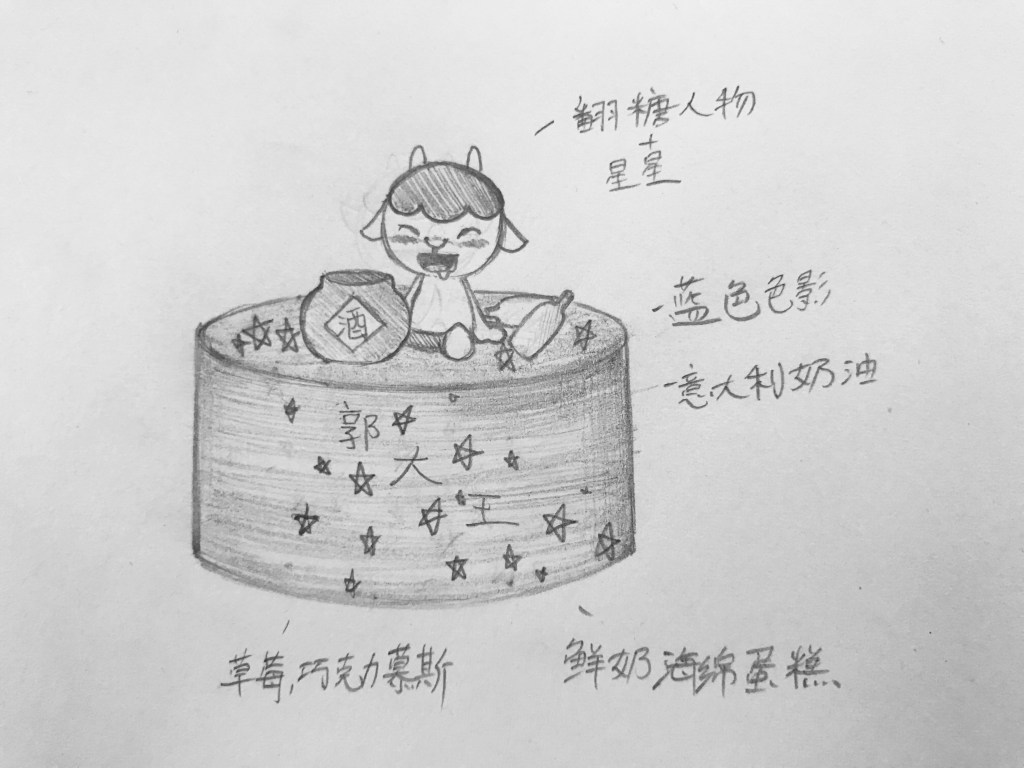 翻糖人物
+
星星
酒
蓝色色影
意大利奶油
郭
大
王
草莓,巧克力慕斯
鲜奶海绵蛋糕